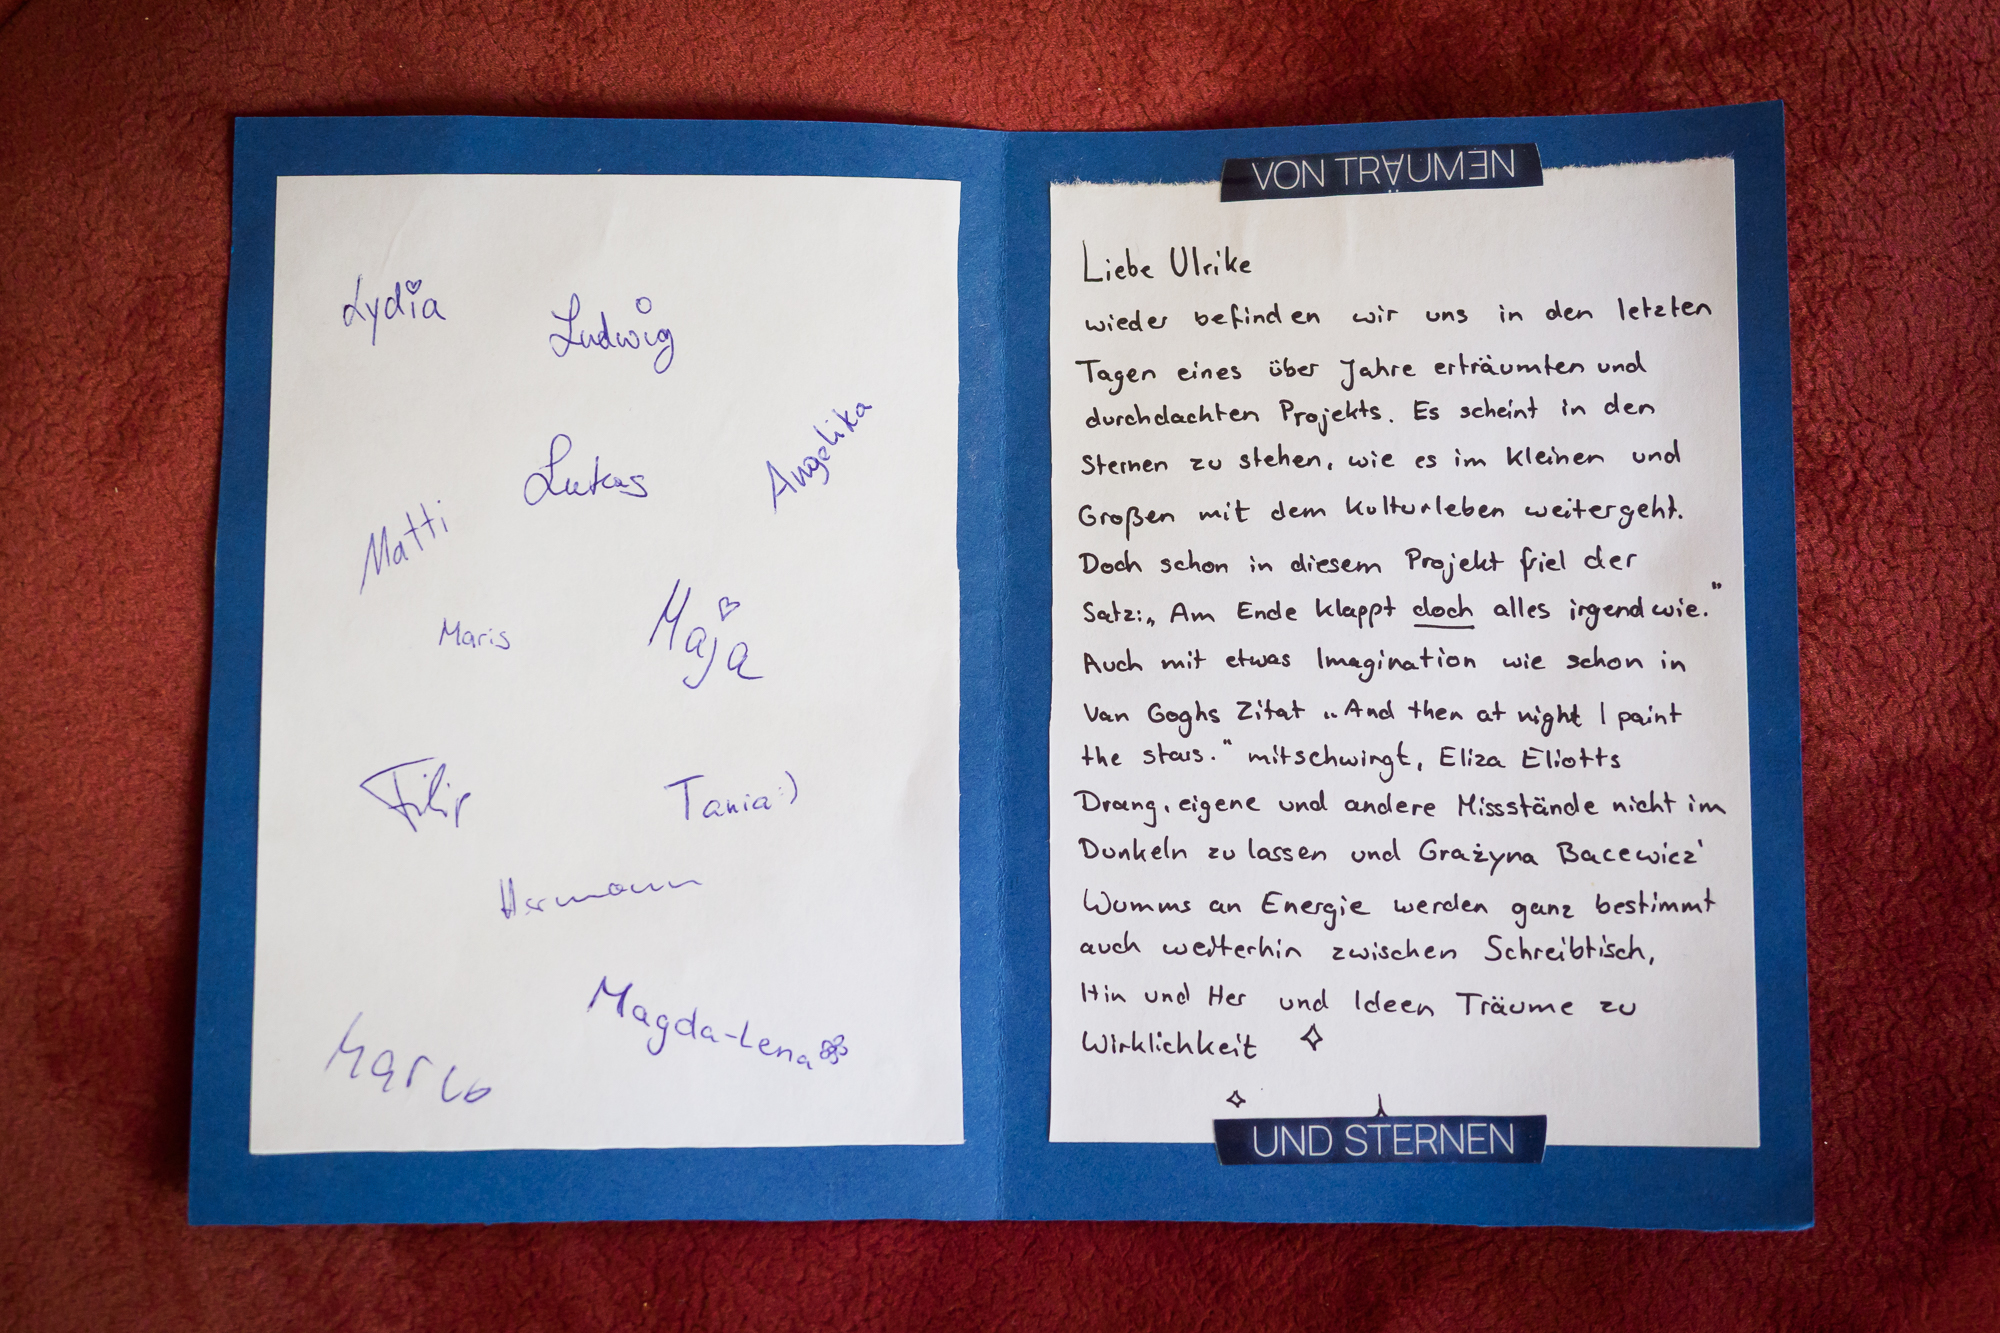 Lydia
Ludwig
Lukas
Angelika
Matti
Maris
Maja
Filip
Tania :)
Hermann
Magda-Lena
Marco
VON TRÄUMEN
Liebe Ulrike
wieder befinden wir uns in den letzten
Tagen eines über Jahre erträumten und
durchdachten Projekts. Es scheint in den
Sternen zu stehen, wie es im Kleinen und
Großen mit dem Kulturleben weitergeht.
Doch schon in diesem Projekt friel der
Satz: „Am Ende klappt doch alles irgendwie.“
Auch mit etwas Imagination wie schon in
Van Goghs Zitat „And then at night I paint
the stars.“ mitschwingt, Eliza Eliotts
Drang, eigene und andere Missstände nicht im
Dunkeln zu lassen und Grażyna Bacewicz'
Wumms an Energie werden ganz bestimmt
auch weiterhin zwischen Schreibtisch,
Hin und Her und Ideen Träume zu
Wirklichkeit
UND STERNEN